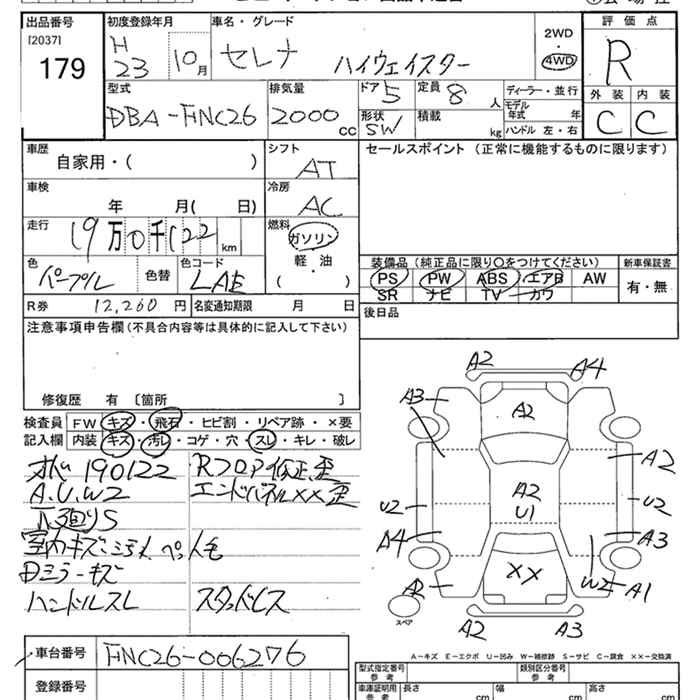 出品番号 初度登録年月 車名・グレード 評価点
[2037]
179
H 23 10月 セレナ ハイウェイスター 2WD 4WD R
型式 排気量 ドア 5 定員 8人 ディーラー・並行 外装 内装
DBA-FNC26 2000cc 形状 SW 積載 kg モデル年式 年 ハンドル 左・右 C C
車歴 シフト セールスポイント (正常に機能するものに限ります)
自家用・( ) AT
車検 冷房
年 月( 日) AC
走行 燃料
19万0千122km ガソリン
軽・油
( )
装備品 (純正品に限り○をつけてください) 新車保証書
色 色替 色コード
パープル LAE
PS PW ABS エアB AW 有・無
SR ナビ TV カワ
R券 12,260円 名変通知期限 月 日
後日品
注意事項申告欄 (不具合内容等は具体的に記入して下さい)
修復歴 有 〔箇所 〕
検査員 FW キズ・飛石・ヒビ割・リペア跡・×要
記入欄 内装 キズ・汚レ・コゲ・穴・スレ・キレ・破レ
190122 RフロアP修正、歪
A.U.W2 エンドパネルXX歪
下廻りS
室内キズ、シミ
Dミラーキズ
ハンドルスレ
A2
A4
A3
A2
A2
A2
U1
U2
U2
A4
A3
XX
A2
W2
A1
スペア
A2
A3
A-キズ E-エクボ U-凹み W-補修跡 S-サビ C-腐食 ××-交換済
車台番号 FNC26-006276
型式指定番号 参考 類別区分番号 参考
登録番号
車庫証明用 参考 長さ cm 幅 cm 高さ cm